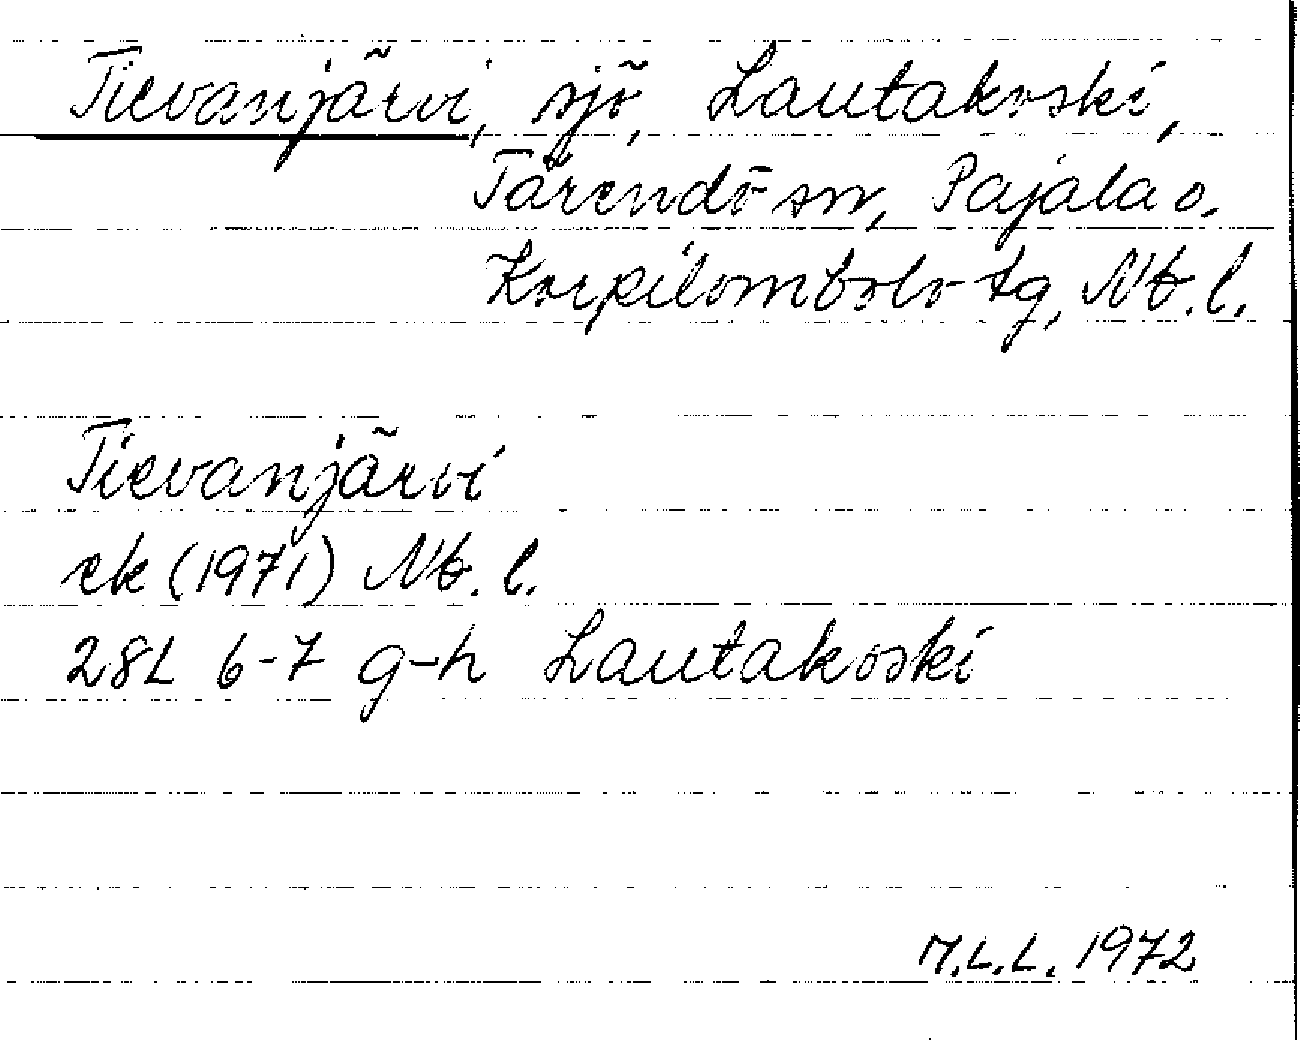 Tievanjärvi, sjö, Lautakoski,
Tärendö sn, Pajala o.
Korpilombolo tg, Nb. l.
Tievanjärvi
ek (1971) Nb. l.
28L 6-7 g-h Lautakoski
M.L.L. 1972